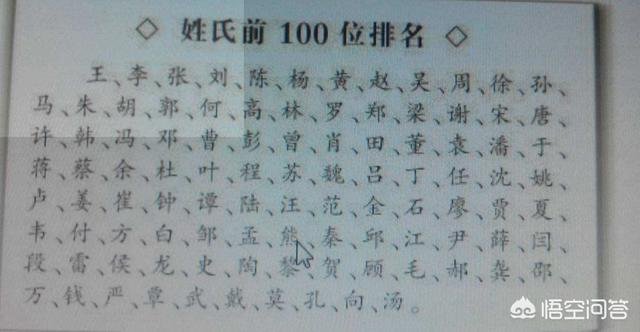 ◇ 姓氏前100位排名 ◇
王、李、张、刘、陈、杨、黄、赵、吴、周、徐、孙、
马、朱、胡、郭、何、高、林、罗、郑、梁、谢、宋、唐、
许、韩、冯、邓、曹、彭、曾、肖、田、董、袁、潘、于、
蒋、蔡、余、杜、叶、程、苏、魏、吕、丁、任、沈、姚、
卢、姜、崔、钟、谭、陆、汪、范、金、石、廖、贾、夏、
韦、付、方、白、邹、孟、熊、秦、邱、江、尹、薛、闫、
段、雷、侯、龙、史、陶、黎、贺、顾、毛、郝、龚、邵、
万、钱、严、覃、武、戴、莫、孔、向、汤。
悟空问答